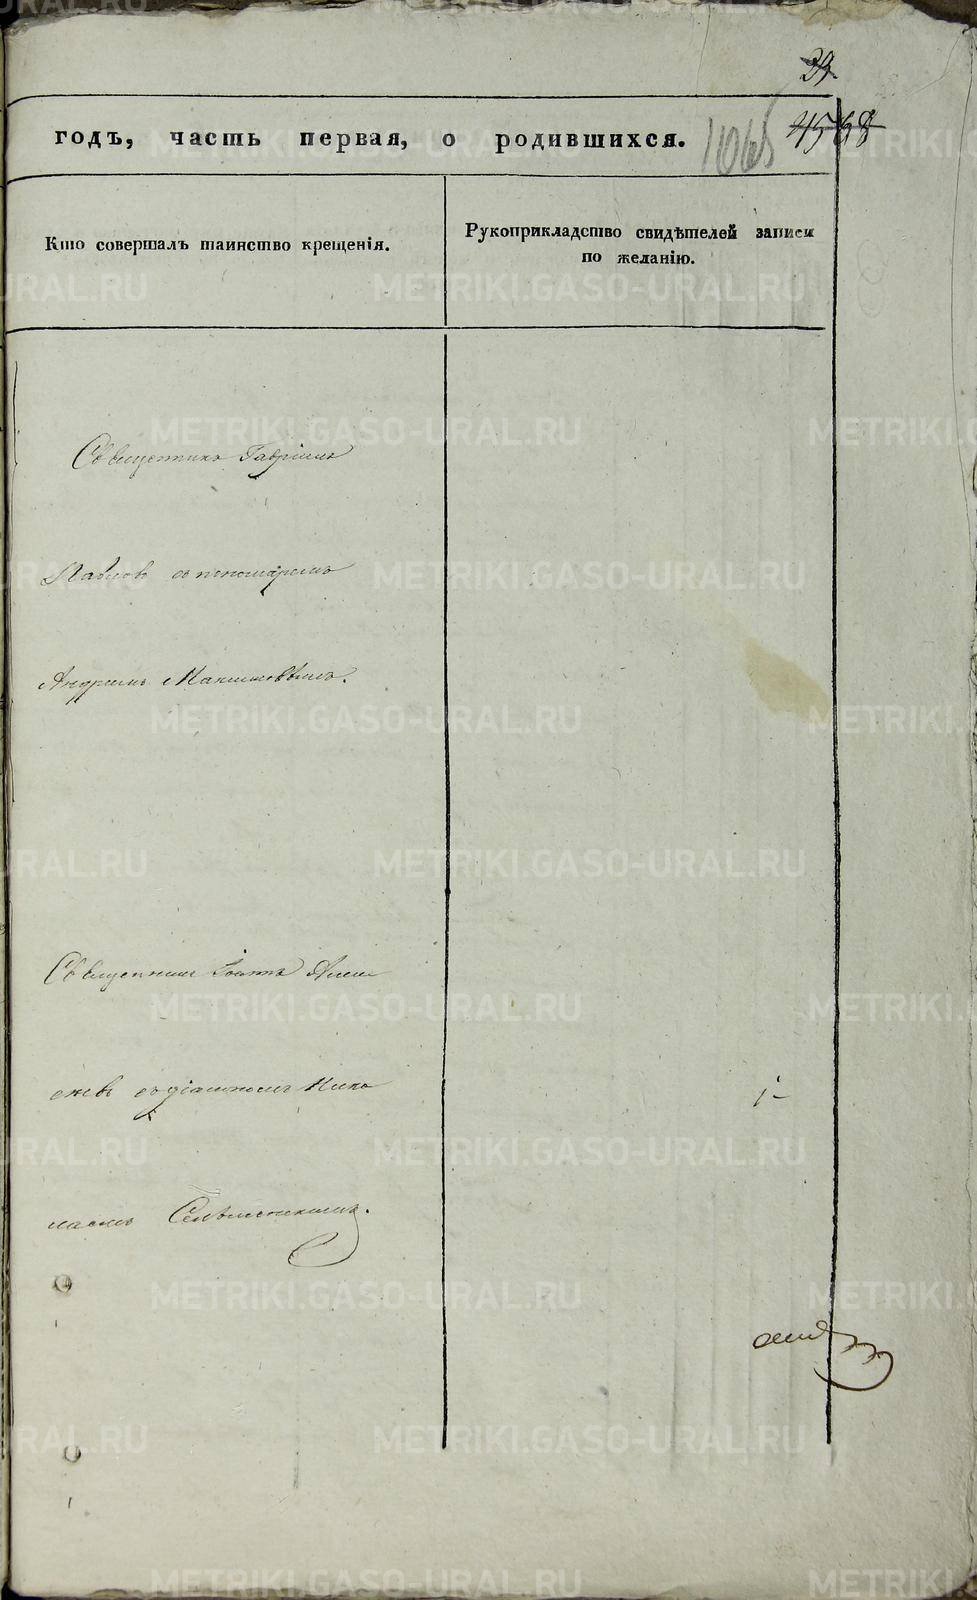 39
годъ, часть первая, о родившихся.
1065
4588
Кто совершалъ таинство крещенія.
Рукоприкладство свидѣтелей записи
по желанію.
Священникъ Гавріилъ
Павловъ съ пономаремъ
Андреемъ
Священникъ Іоаннъ
съ діакономъ Нико
лаемъ
METRIKI.GASO-URAL.RU